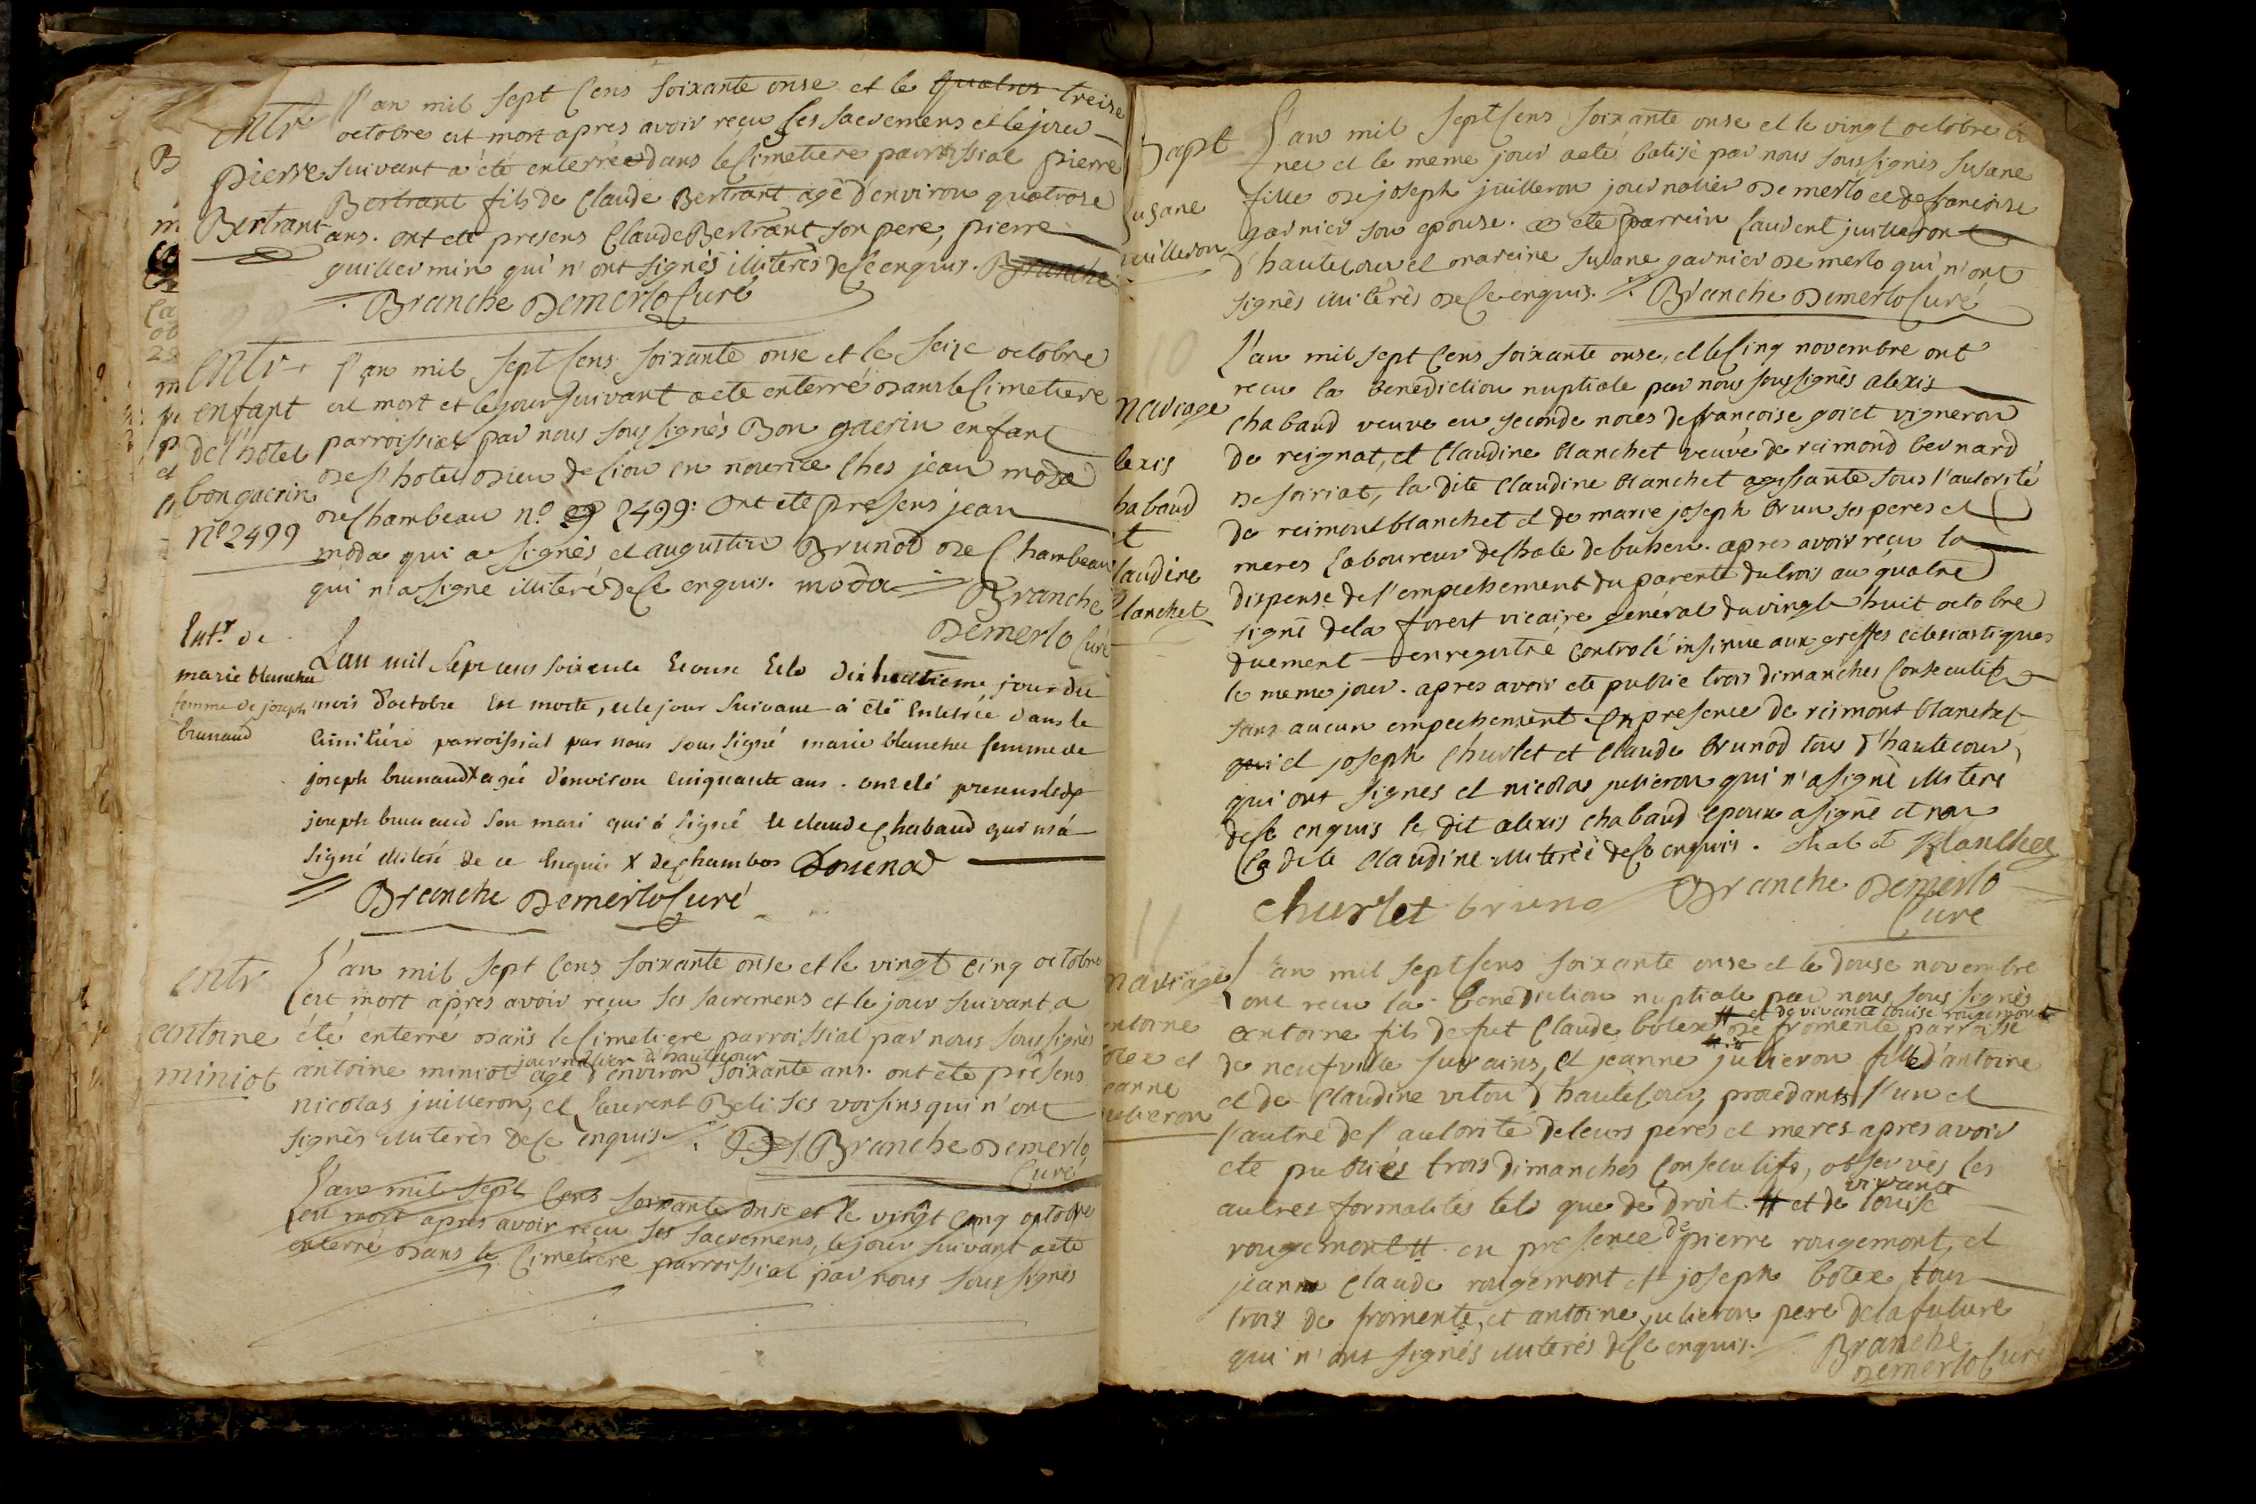 entr
pierre
Bertrant
l'an mil sept cens soixante onse et le quatres treise
octobre est mort apres avoir reçu ses sacremens et le jour
suivant a été enterrée dans le cimetiere parroissial pierre
Bertrant fils de claude Bertrant agé d'environ quatrose
ans. ont eté presens claude Bertrant son pere, pierre
guillermin qui n'ont signés illiterés de ce enquis. Branche
Branche Demerlo curé
entr
enfant
de l'hôtel
bon guerin
n.o 2499
l'an mil sept cens soixante onse et le seize octobre
est mort et le jour suivant a eté enterré dans le cimetiere
parroissial par nous sous signés Bon guerin enfant
de l'hotel dieu de lion en nourice ches jean moda
de chambeau n.o 2499. ont eté presens jean
moda qui a signés et augustin Brunod de chambeau
qui n'a signé illiteré de ce enquis. moda Branche
Demerlo curé
Entr de
marie blanchet
femme de joseph
brunaud
Lan mil sept cens soixante et onze et le dix huitieme jour du
mois d'octobre est morte, et le jour suivant a été enterrée dans le
cimitiere parroissial par nous sous signé marie blanchet femme de
joseph brunaud x agée d'environ cinquante ans. ont été presens ledt
joseph brunaud son mari qui a signé et claude chabaud qui n'a
signé illiteré de ce enquis x de chambos
Branche Demerlo curé
entr
antoine
miniot
L'an mil sept cens soixante onse et le vingt cinq octobre
est mort apres avoir reçu ses sacremens et le jour suivant a
été enterré dans le cimetiere parroissial par nous sous signés
journalier d'hautecour
antoine miniot agé d'environ soixante ans. ont eté presens
nicolas juilleron, et laurent Beli ses voisins qui n'ont
signés illiterés de ce enquis. Branche Demerlo
curé
L'an mil sept cens soixante onse et le vingt cinq octobre
est mort apres avoir reçu ses sacremens, le jour suivant a eté
enterré dans le cimetiere parroissial par nous sous signés
Bapt
susane
juilleron
L'an mil sept cens soixante onse et le vingt octobre est
nee et le meme jour a eté batisé par nous soussignés susane
fille de joseph juilleron journalier de merlo et de francoise
garnier son epouse. a eté parrein laurent juilleron
d'hautecour et mareine susane garnier de merlo qui n'ont
signés illiterés de ce enquis. Branche Demerlo curé
mariage
lexis
habaud
et
laudine
lanchet
L'an mil sept cens soixante onse, et le cinq novembre ont
recu la benediction nuptiale par nous sous signés alexis
chabaud veuve en seconde noces de françoise goiet vigneron
de reignat, et claudine blanchet veuve de reimond bernard
de soiriat, la dite claudine blanchet agissante sous l'autorité
de reimont blanchet et de marie joseph brun ses peres et
meres laboureur de chale de buhen. apres avoir reçu la
dispense de l'empechement du parenté du trois au quatre
signé dela forest vicaire general du vingt huit octobre
duement enregistré controlé insinue aux greffes eclesiastiques
le meme jour. apres avoir eté publie trois dimanches consecutifs
sans aucun empechement en presence de reimont blanchet
qui et joseph churlet et claude brunod tous d'hautecour,
qui ont signes et nicolas julieron qui n'a signé illiteré
de ce enquis le dit alexis chabaud epoux a signé et non
la dite claudine illiterée de ce enquis. chabot blanchet
churlet bruno Branche Demerlo
curé
mariage
antoine
botex et
jeanne
julieron
L'an mil sept cens soixante onse et le douse novembre
ont reçu la benediction nuptiale par nous sous signés
# et de vivante louise rougemont
antoine fils de fut claude botex # de fromente parroisse
de neufville sur ains, et jeanne julieron fille d'antoine
et de claudine vitou d'hautecour, procedants l'un et
l'autre de l'autorité de leurs peres et meres apres avoir
eté publiés trois dimanches consecutifs, observés les
autres formalités tels que de droit. # et de vivante louise
rougemont # en presence de pierre rougemont, et
jeann claude rougemont et joseph botex tous
trois de fromente, et antoine julieron pere de la future
qui n'ont signés illiterés de ce enquis. Branche
Demerlo curé